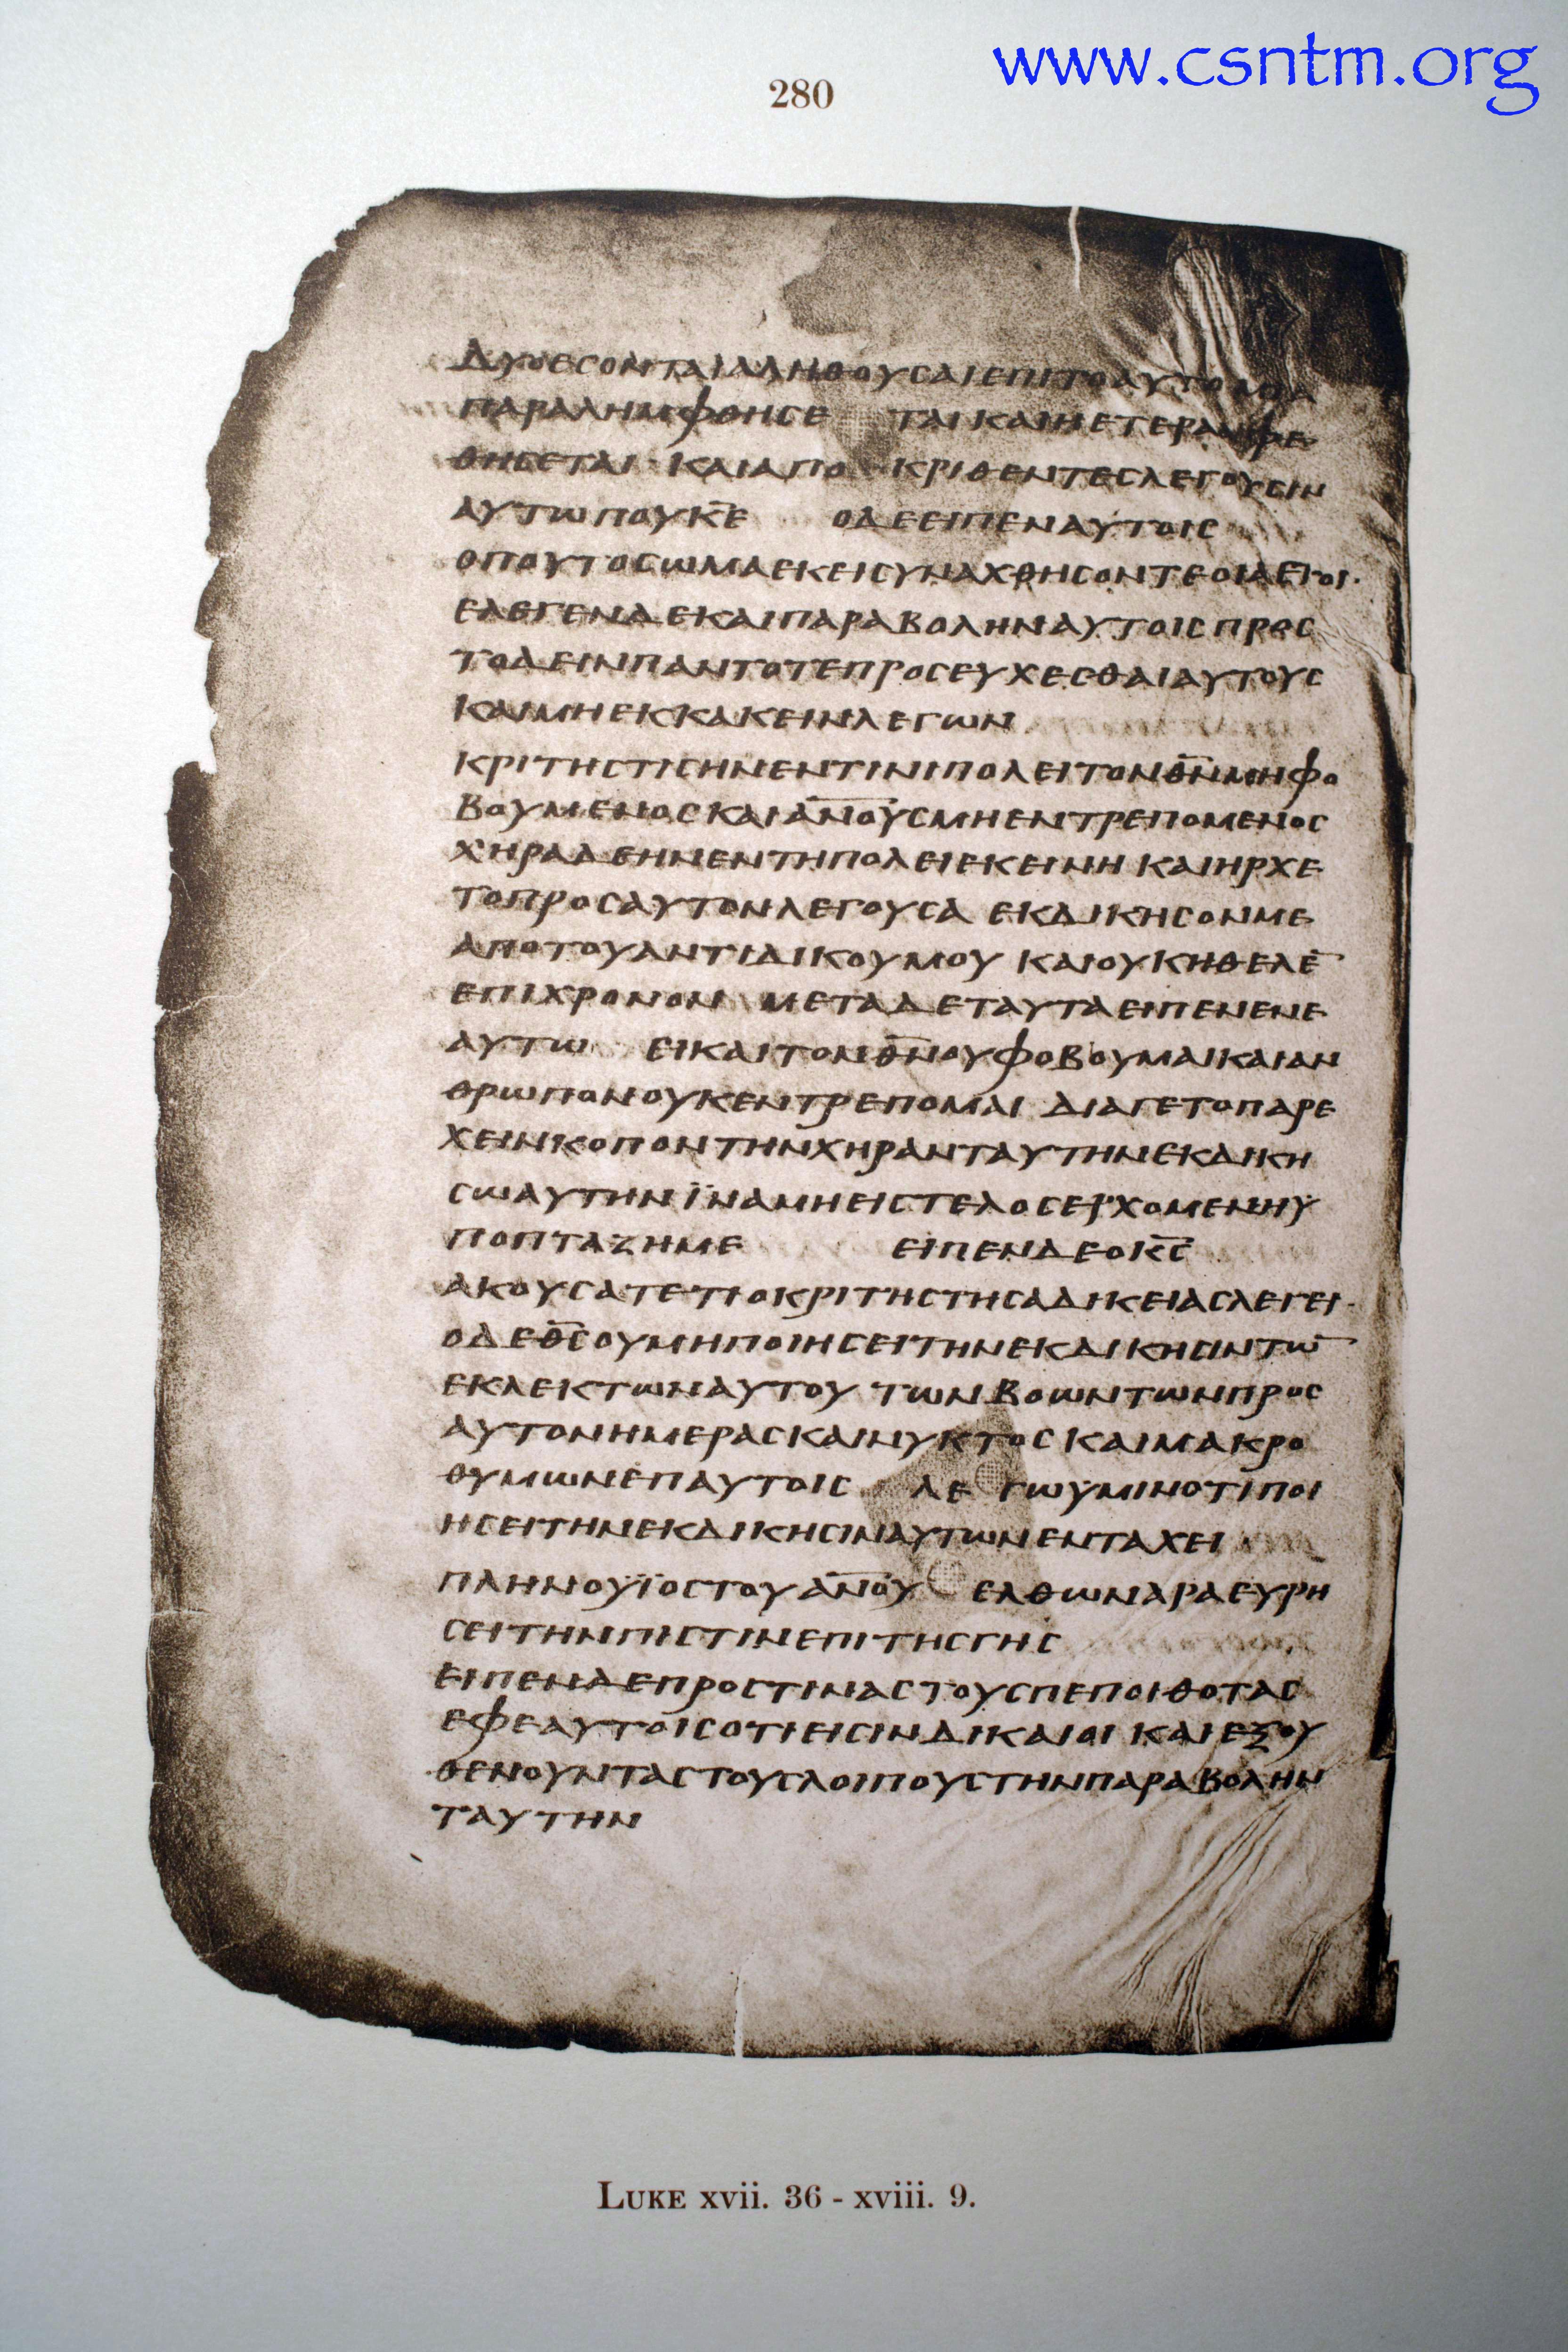 www.csntm.org
280
ΔΥΟΕCΟΝΤΑΙΑΛΗΘΟΥCΑΙΕΠΙΤΟΑΥΤΟ
ΠΑΡΑΛΗΜΦΘΗCΕ ΤΑΙΚΑΙΗΕΤΕΡΑΑΦΕ
ΘΗCΕΤΑΙ ΚΑΙΑΠΟ ΚΡΙΘΕΝΤΕCΛΕΓΟΥCΙΝ
ΑΥΤΩΠΟΥΚ̅Ε̅ ΟΔΕΕΙΠΕΝΑΥΤΟΙC
ΟΠΟΥΤΟCΩΜΑΕΚΕΙCΥΝΑΧΘΗCΟΝΤΕΟΙΑΕΤΟΙ·
ΕΛΕΓΕΝΔΕΚΑΙΠΑΡΑΒΟΛΗΝΑΥΤΟΙCΠΡΟC
ΤΟΔΕΙΝΠΑΝΤΟΤΕΠΡΟCΕΥΧΕCΘΑΙΑΥΤΟΥC
ΚΑΙΜΗΕΚΚΑΚΕΙΝΛΕΓΩΝ
ΚΡΙΤΗCΤΙCΗΝΕΝΤΙΝΙΠΟΛΕΙΤΟΝΘ̅Ν̅ΜΗΦΟ
ΒΟΥΜΕΝΟCΚΑΙΑ̅Ν̅Ο̅Υ̅CΜΗΕΝΤΡΕΠΟΜΕΝΟC
ΧΗΡΑΔΕΗΝΕΝΤΗΠΟΛΕΙΕΚΕΙΝΗ ΚΑΙΗΡΧΕ
ΤΟΠΡΟCΑΥΤΟΝΛΕΓΟΥCΑ ΕΚΔΙΚΗCΟΝΜΕ
ΑΠΟΤΟΥΑΝΤΙΔΙΚΟΥΜΟΥ ΚΑΙΟΥΚΗΘΕΛΕ̅
ΕΠΙΧΡΟΝΟΝ ΜΕΤΑΔΕΤΑΥΤΑΕΙΠΕΝΕΝΕ
ΑΥΤΩ ΕΙΚΑΙΤΟΝΘ̅Ν̅ΟΥΦΟΒΟΥΜΑΙΚΑΙΑΝ
ΘΡΩΠΟΝΟΥΚΕΝΤΡΕΠΟΜΑΙ ΔΙΑΓΕΤΟΠΑΡΕ
ΧΕΙΝΚΟΠΟΝΤΗΝΧΗΡΑΝΤΑΥΤΗΝΕΚΔΙΚΗ
CΩΑΥΤΗΝΪΝΑΜΗΕΙCΤΕΛΟCΕΡΧΟΜΕΝΗΥ
ΠΟΠΤΑΖΗΜΕ ΕΙΠΕΝΔΕΟΚ̅C̅
ΑΚΟΥCΑΤΕΤΙΟΚΡΙΤΗCΤΗCΑΔΙΚΕΙΑCΛΕΓΕΙ·
ΟΔΕΘ̅C̅ΟΥΜΗΠΟΙΗCΕΙΤΗΝΕΚΔΙΚΗCΙΝΤΩ̅
ΕΚΛΕΚΤΩΝΑΥΤΟΥ ΤΩΝΒΟΩΝΤΩΝΠΡΟC
ΑΥΤΟΝΗΜΕΡΑCΚΑΙΝΥΚΤΟC ΚΑΙΜΑΚΡΟ
ΘΥΜΩΝΕΠΑΥΤΟΙC ΛΕ ΓΩΫΜΙΝΟΤΙΠΟΙ
ΗCΕΙΤΗΝΕΚΔΙΚΗCΙΝΑΥΤΩΝΕΝΤΑΧΕΙ
ΠΛΗΝΟΥΪΟCΤΟΥΑ̅Ν̅Ο̅Υ̅ ΕΛΘΩΝΑΡΑΕΥΡΗ
CΕΙΤΗΝΠΙCΤΙΝΕΠΙΤΗCΓΗC
ΕΙΠΕΝΔΕΠΡΟCΤΙΝΑCΤΟΥCΠΕΠΟΙΘΟΤΑC
ΕΦΕΑΥΤΟΙCΟΤΙΕΙCΙΝΔΙΚΑΙΟΙ ΚΑΙΕΞΟΥ
ΘΕΝΟΥΝΤΑCΤΟΥCΛΟΙΠΟΥCΤΗΝΠΑΡΑΒΟΛΗΝ
ΤΑΥΤΗΝ
LUKE xvii. 36 - xviii. 9.